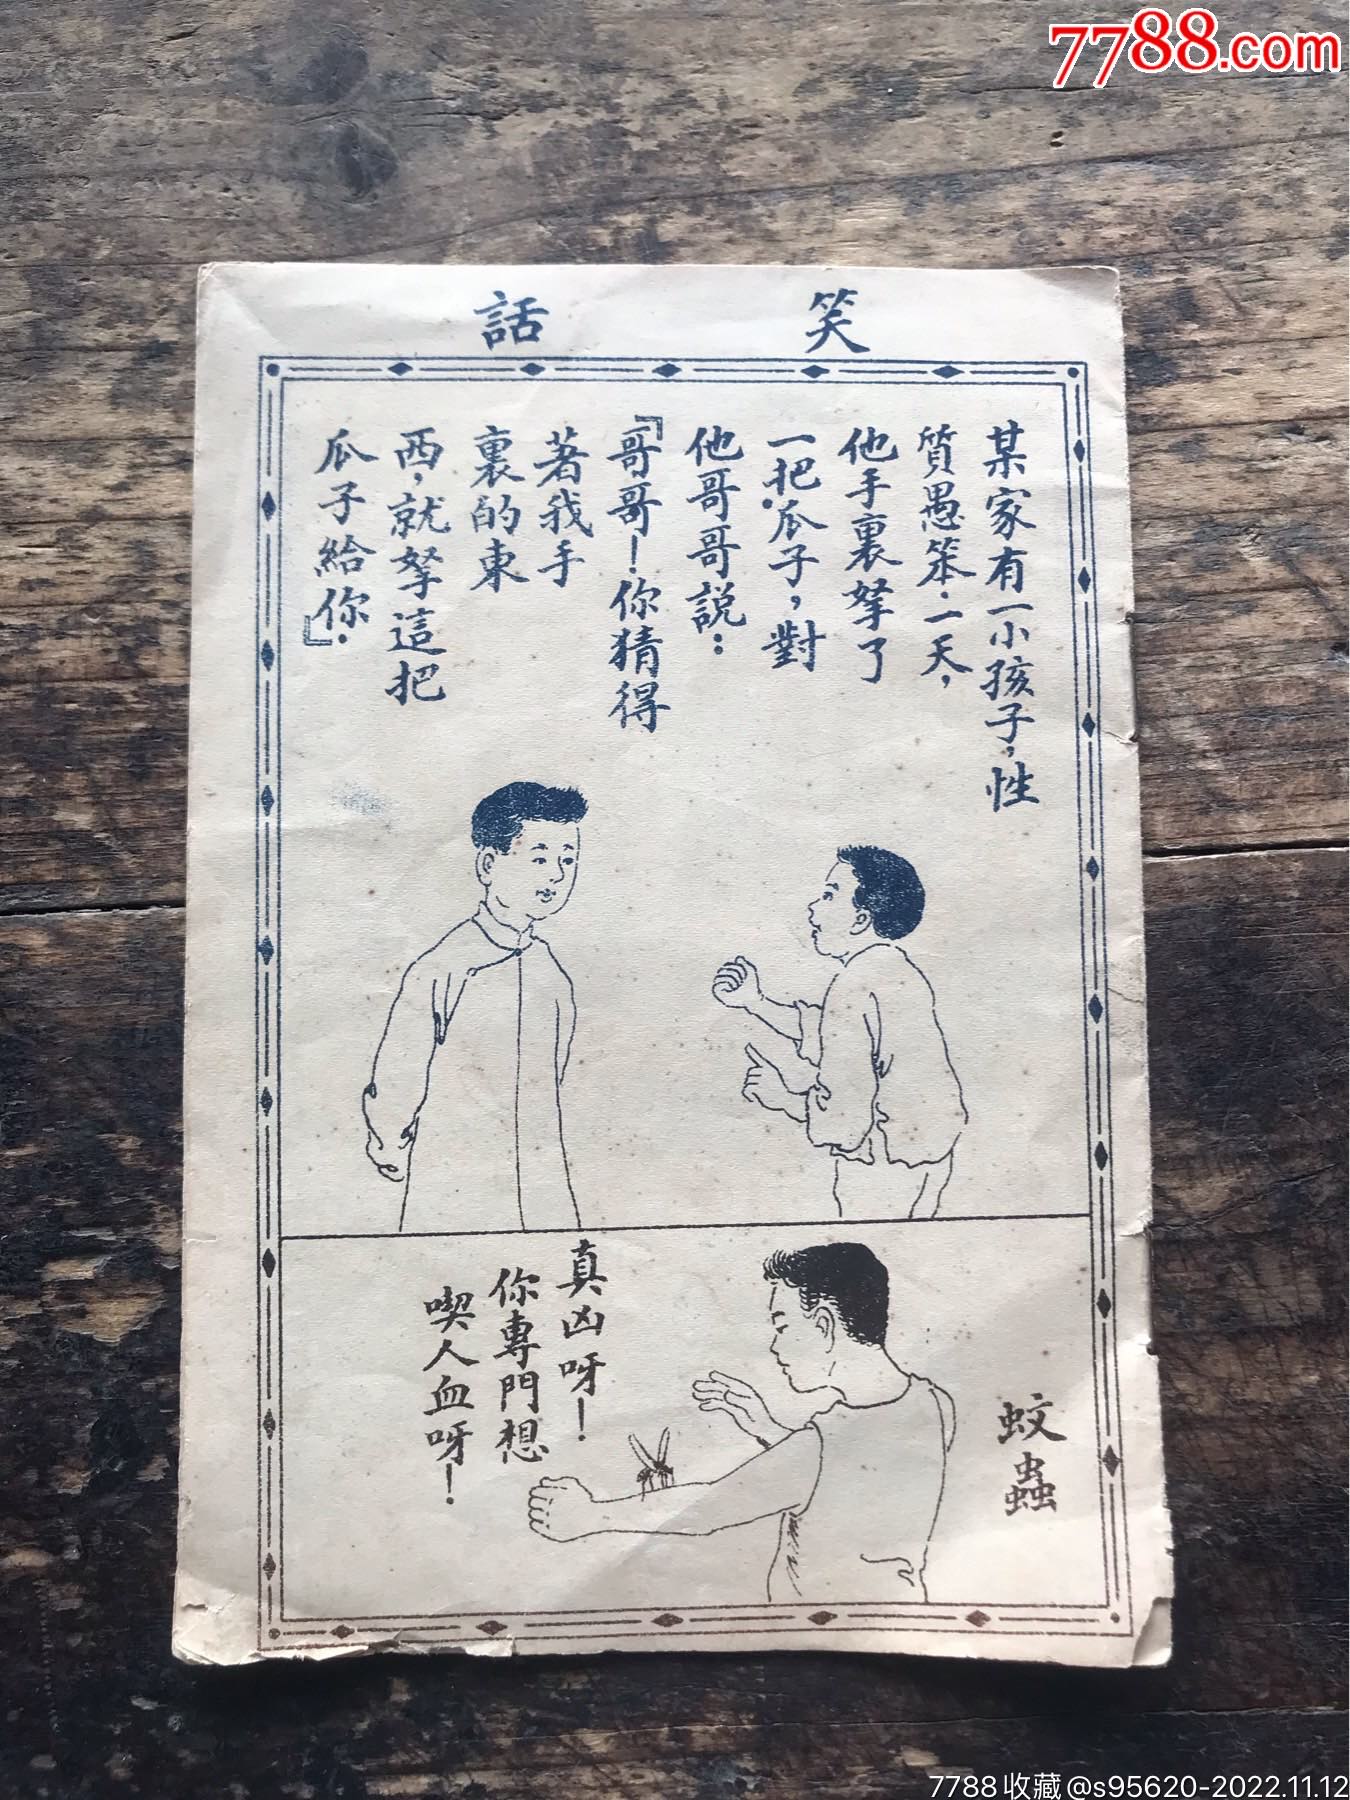 7788.com
笑話
某家有一小孩子，性
質愚笨．一天，
他手裏拏了
一把瓜子，對
他哥哥說：
『哥哥！你猜得
著我手
裏的東
西，就拏這把
瓜子給你．』
蚊蟲
真凶呀！
你專門想
喫人血呀！
7788收藏@s95620-2022.11.12